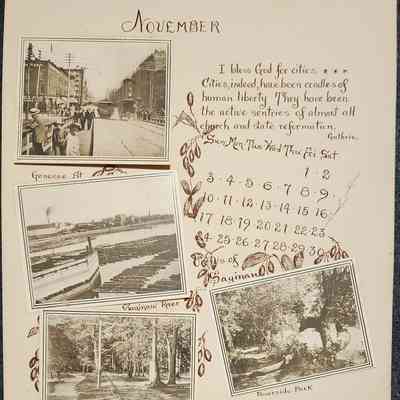 NOVEMBER
I bless God for cities * * *
Cities, indeed, have been cradles of
human liberty. They have been
the active sentries of almost all
church and state reformation.
Guthrie.
Sun. Mon. Tue. Wed. Thu. Fri. Sat.
1 - 2
3 - 4 - 5 - 6 - 7 - 8 - 9
10 - 11 - 12 - 13 - 14 - 15 - 16
17 18 19 20 21 22 - 23
24 25 26 27 28 29 30
Genesee St
of
Saginaw
Saginaw River
Riverside Park